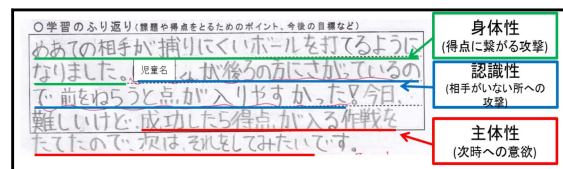 ○学習のふり返り(課題や得点をとるためのポイント、今後の目標など)
めあての相手が捕りにくいボールを打てるように
なりました。児童名くんが後ろの方にさがっているの
で前をねらうと点が入りやすかった!今日、
難しいけど、成功したら得点が入る作戦を
たてたので、次は、それをしてみたいです。
身体性
(得点に繋がる攻撃)
認識性
(相手がいない所への
攻撃)
主体性
(次時への意欲)